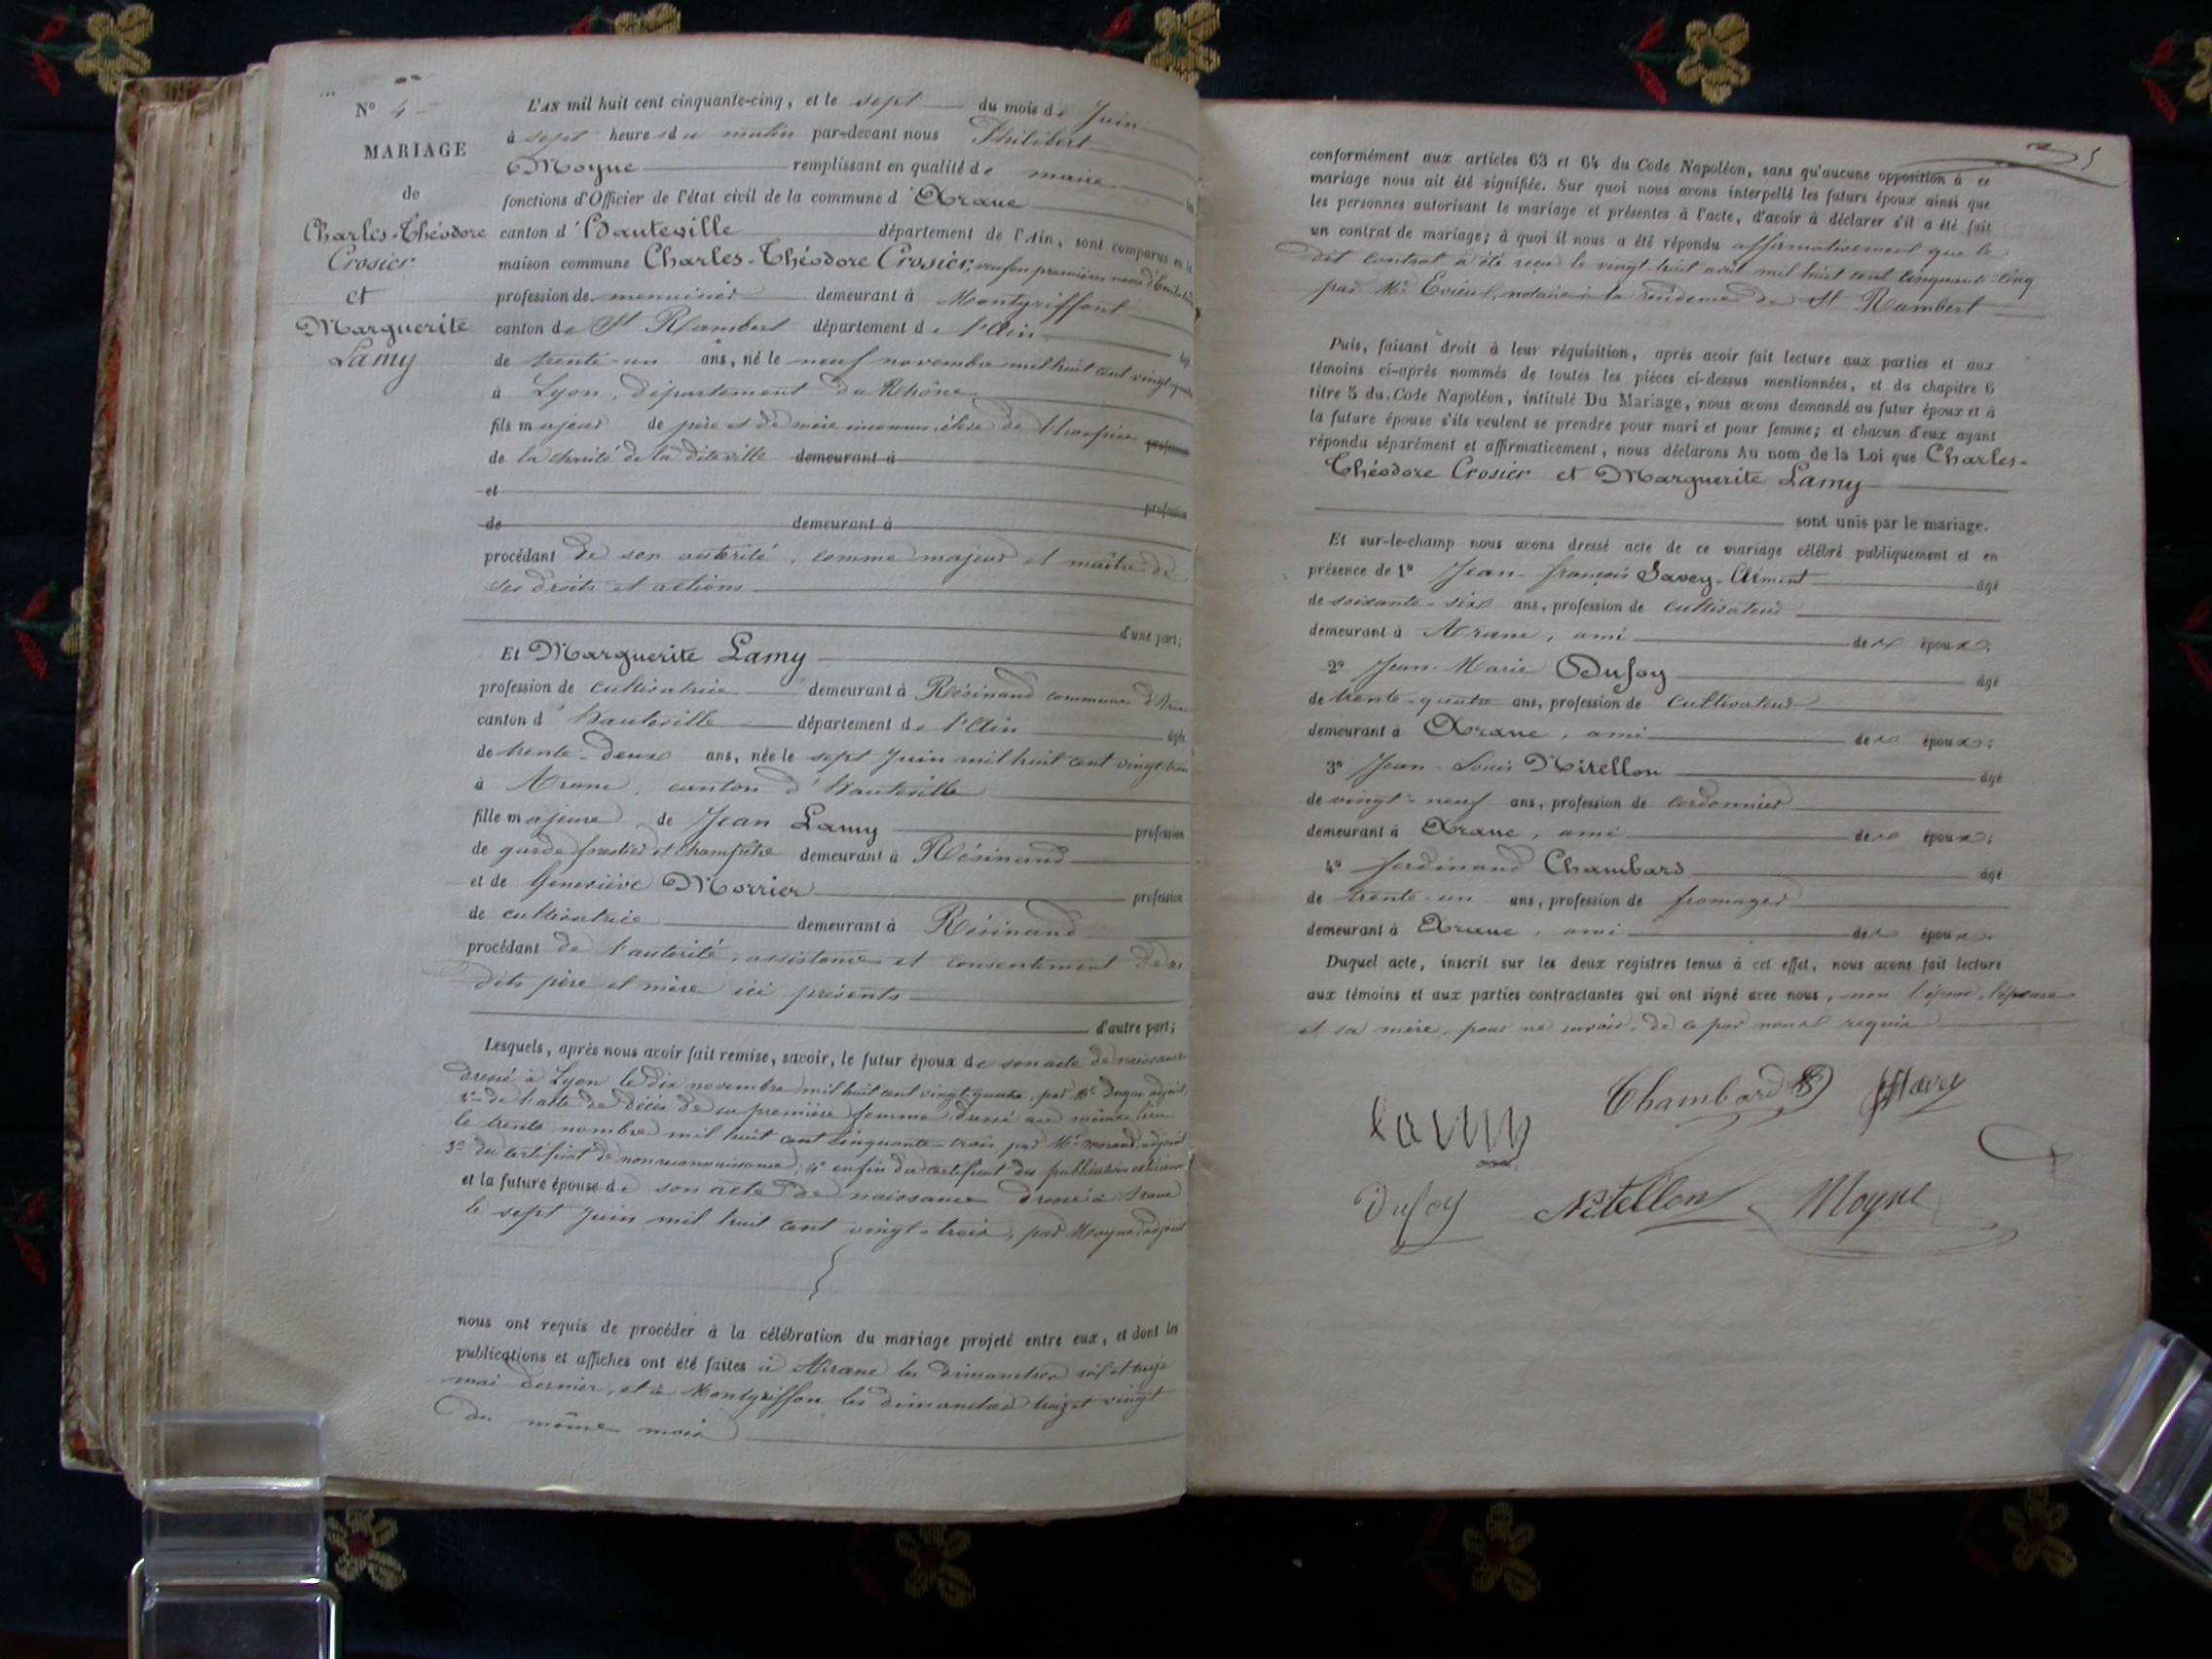 N° 4
MARIAGE
de
Charles-Théodore
Crosier
et
Marguerite
Lamy
L'AN mil huit cent cinquante-cinq, et le sept du mois de Juin
à sept heures du matin par-devant nous Philibert
Moyne remplissant en qualité de maire les
fonctions d'Officier de l'état civil de la commune d'Arane
canton d'Hauteville département de l'Ain, sont comparus en la
maison commune Charles-Théodore Crosier, veuf en premières noces
profession de menuisier demeurant à Montgriffont
canton de St Rambert département de l'Ain âgé
de trente-un ans, né le neuf novembre mil huit cent vingt quatre
à Lyon, département du Rhône
fils majeur de père et de mère inconnus, élève de l'hospice profession
de la charité de la dite ville demeurant à
et profession
de demeurant à
procédant de son autorité, comme majeur et maître de
ses droits et actions
d'une part;
Et Marguerite Lamy
profession de cultivatrice demeurant à Résinand commune d'Arane
canton d'Hauteville département de l'Ain âgée
de trente-deux ans, née le sept Juin mil huit cent vingt-trois
à Arane, canton d'Hauteville
fille majeure de Jean Lamy profession
de garde forestier et champêtre demeurant à Résinand
et de Geneviève Morrier profession
de cultivatrice demeurant à Résinand
procédant de l'autorité, assistance et consentement de ses
dits père et mère ici présents
d'autre part;
Lesquels, après nous avoir fait remise, savoir, le futur époux de son acte de naissance
dressé à Lyon le dix novembre mil huit cent vingt-quatre, par Mr Dugas adjoint
2° de l'acte de décès de sa première femme, dressé au même lieu
le trente nombre mil huit cent cinquante-trois, par Mr Morand, adjoint
3° du certificat de non reconnaissance; 4° enfin du certificat des publications
et la future épouse de son acte de naissance dressé à Arane
le sept Juin mil huit cent vingt-trois, par Moyne adjoint
nous ont requis de procéder à la célébration du mariage projeté entre eux, et dont les
publications et affiches ont été faites à Arane les dimanches six et treize
mai dernier, et à Montgriffon les dimanches treize et vingt
du même mois
conformément aux articles 63 et 64 du Code Napoléon, sans qu'aucune opposition à ce
mariage nous ait été signifiée. Sur quoi nous avons interpellé les futurs époux ainsi que
les personnes autorisant le mariage et présentes à l'acte, d'avoir à déclarer s'il a été fait
un contrat de mariage; à quoi il nous a été répondu affirmativement que le
dit contrat a été reçu le vingt-huit avril mil huit cent cinquante-cinq
par Me notaire à la résidence de St Rambert
Puis, faisant droit à leur réquisition, après avoir fait lecture aux parties et aux
témoins ci-après nommés de toutes les pièces ci-dessus mentionnées, et du chapitre 6
titre 5 du Code Napoléon, intitulé Du Mariage, nous avons demandé au futur époux et à
la future épouse s'ils veulent se prendre pour mari et pour femme; et chacun d'eux ayant
répondu séparément et affirmativement, nous déclarons Au nom de la Loi que Charles-
Théodore Crosier et Marguerite Lamy
sont unis par le mariage.
Et sur-le-champ nous avons dressé acte de ce mariage célébré publiquement et en
présence de 1° Jean-françois Savey-Aiment âgé
de soixante-six ans, profession de cultivateur
demeurant à Arane, ami des époux;
2° Jean-Marie Dufoy âgé
de trente-quatre ans, profession de cultivateur
demeurant à Arane, ami des époux;
3° Jean-Louis Nitellon âgé
de vingt-neuf ans, profession de cordonnier
demeurant à Arane, ami des époux;
4° ferdinand Chambard âgé
de trente-un ans, profession de fromager
demeurant à Arane, ami des époux.
Duquel acte, inscrit sur les deux registres tenus à cet effet, nous avons fait lecture
aux témoins et aux parties contractantes qui ont signé avec nous, non l'époux, l'épouse
et sa mère, pour ne savoir, de ce par nous requis
Chambard
Lamy
Dufoy Nitellon Moyne